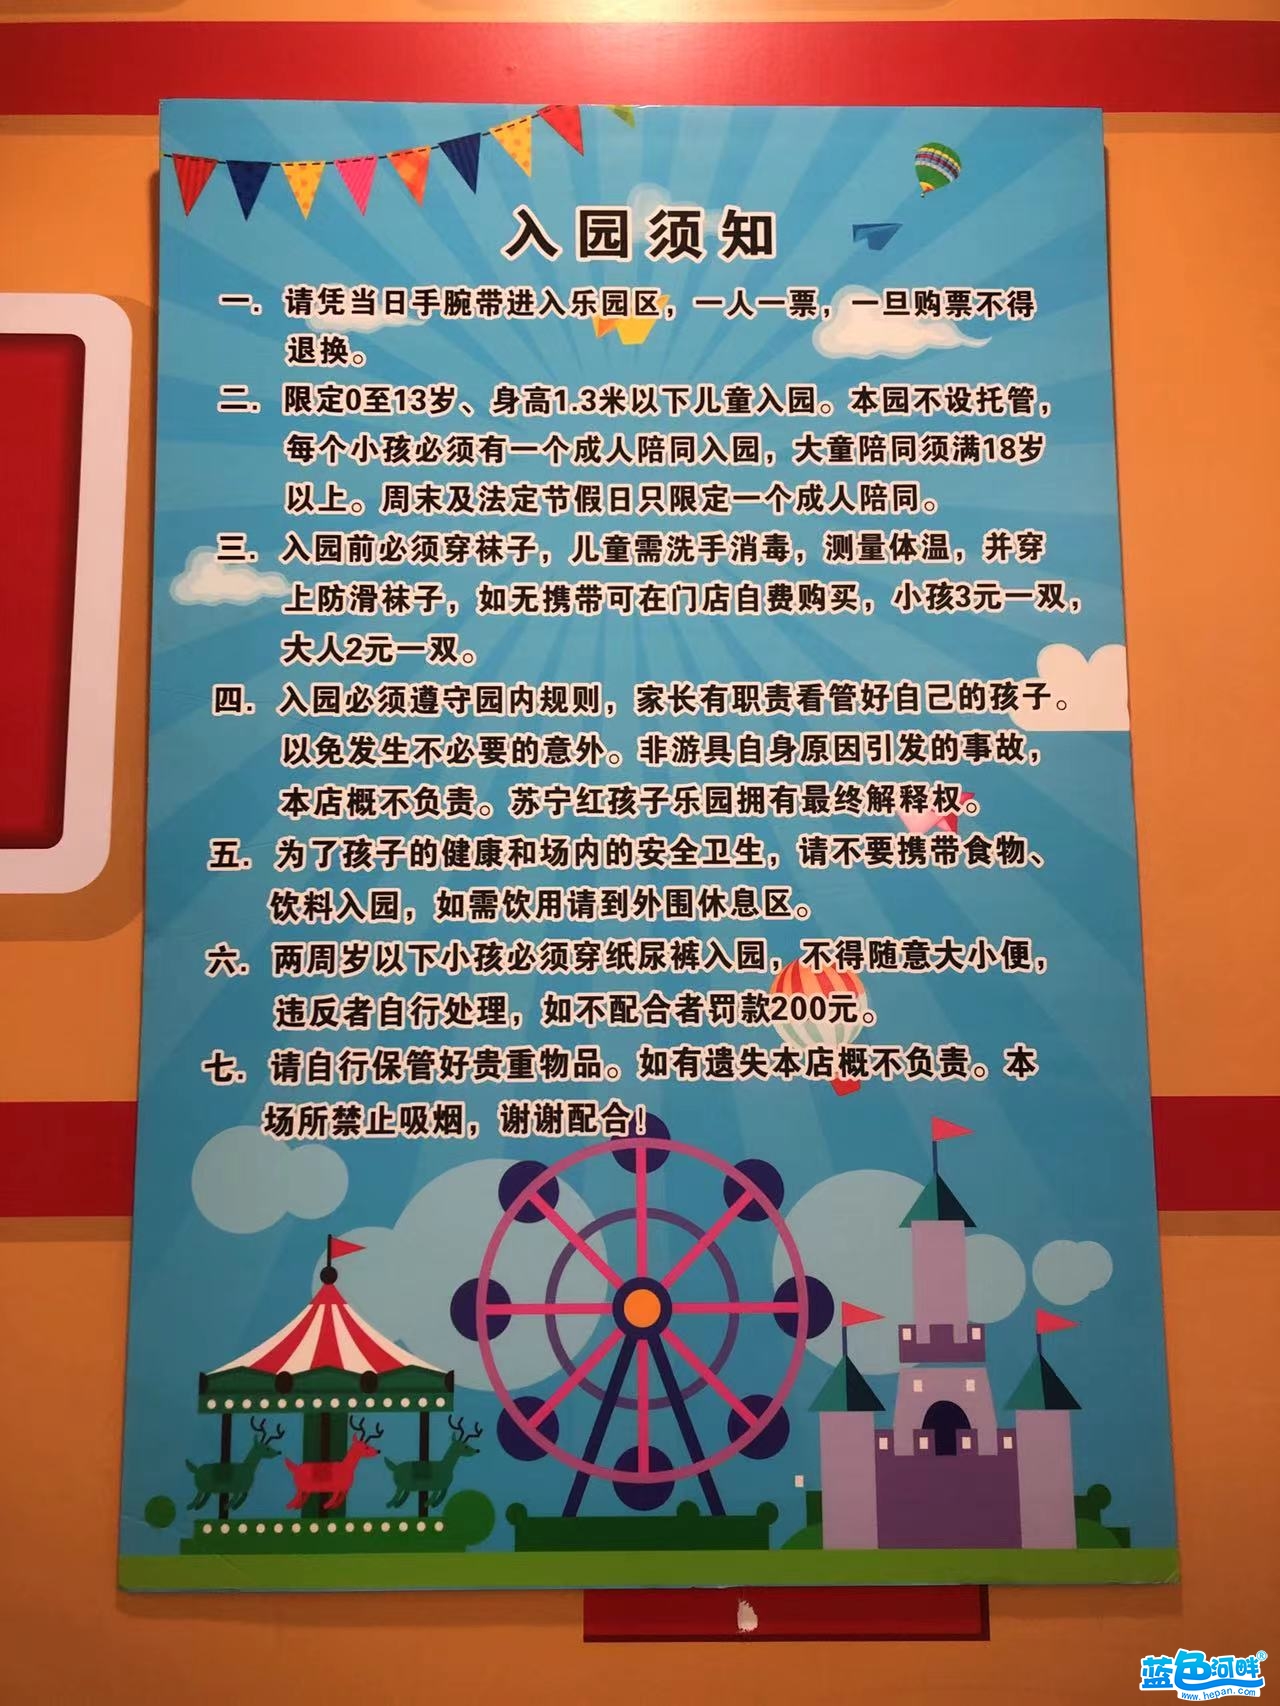 入园须知
一. 请凭当日手腕带进入乐园区，一人一票，一旦购票不得
退换。
二. 限定0至13岁、身高1.3米以下儿童入园。本园不设托管，
每个小孩必须有一个成人陪同入园，大童陪同须满18岁
以上。周末及法定节假日只限定一个成人陪同。
三. 入园前必须穿袜子，儿童需洗手消毒，测量体温，并穿
上防滑袜子，如无携带可在门店自费购买，小孩3元一双，
大人2元一双。
四. 入园必须遵守园内规则，家长有职责看管好自己的孩子。
以免发生不必要的意外。非游具自身原因引发的事故，
本店概不负责。苏宁红孩子乐园拥有最终解释权。
五. 为了孩子的健康和场内的安全卫生，请不要携带食物、
饮料入园，如需饮用请到外围休息区。
六. 两周岁以下小孩必须穿纸尿裤入园，不得随意大小便，
违反者自行处理，如不配合者罚款200元。
七. 请自行保管好贵重物品。如有遗失本店概不负责。本
场所禁止吸烟，谢谢配合！
蓝色河畔®
www.hepan.com